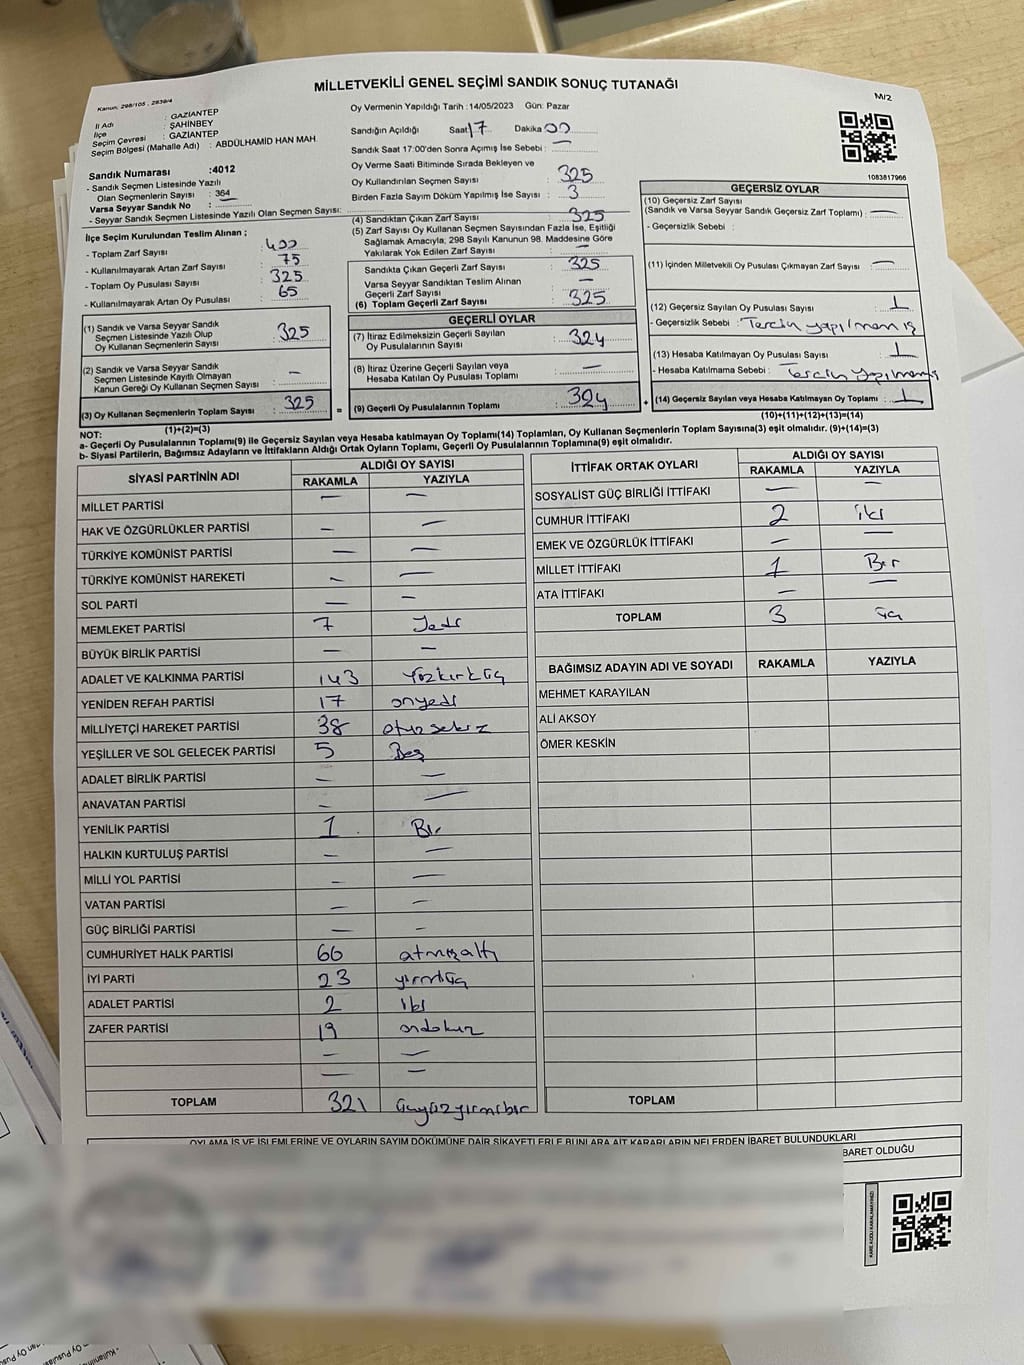 MİLLETVEKİLİ GENEL SEÇİMİ SANDIK SONUÇ TUTANAĞI
M/2
Kanun: 298/105 , 2839/4
İl Adı : GAZİANTEP
İlçe : ŞAHİNBEY
Seçim Çevresi : GAZİANTEP
Seçim Bölgesi (Mahalle Adı) : ABDÜLHAMİD HAN MAH.
Sandık Numarası :4012
- Sandık Seçmen Listesinde Yazılı
Olan Seçmenlerin Sayısı : 364
Varsa Seyyar Sandık No :
- Seyyar Sandık Seçmen Listesinde Yazılı Olan Seçmen Sayısı:
İlçe Seçim Kurulundan Teslim Alınan ;
- Toplam Zarf Sayısı : 400
- Kullanılmayarak Artan Zarf Sayısı : 75
- Toplam Oy Pusulası Sayısı : 325
- Kullanılmayarak Artan Oy Pusulası : 65
(1) Sandık ve Varsa Seyyar Sandık
Seçmen Listesinde Yazılı Olup
Oy Kullanan Seçmenlerin Sayısı : 325
(2) Sandık ve Varsa Seyyar Sandık
Seçmen Listesinde Kayıtlı Olmayan
Kanun Gereği Oy Kullanan Seçmen Sayısı : —
(3) Oy Kullanan Seçmenlerin Toplam Sayısı : 325
(1)+(2)=(3)
Oy Vermenin Yapıldığı Tarih :14/05/2023 Gün: Pazar
Sandığın Açıldığı Saat 17 Dakika 00
Sandık Saat 17:00'den Sonra Açımış İse Sebebi : —
Oy Verme Saati Bitiminde Sırada Bekleyen ve
Oy Kullandırılan Seçmen Sayısı : 325
Birden Fazla Sayım Döküm Yapılmış İse Sayısı : 3
(4) Sandıktan Çıkan Zarf Sayısı : 325
(5) Zarf Sayısı Oy Kullanan Seçmen Sayısından Fazla İse, Eşitliği
Sağlamak Amacıyla; 298 Sayılı Kanunun 98. Maddesine Göre
Yakılarak Yok Edilen Zarf Sayısı : —
Sandıkta Çıkan Geçerli Zarf Sayısı : 325
Varsa Seyyar Sandıktan Teslim Alınan
Geçerli Zarf Sayısı : —
(6) Toplam Geçerli Zarf Sayısı : 325
GEÇERLİ OYLAR
(7) İtiraz Edilmeksizin Geçerli Sayılan
Oy Pusulalarının Sayısı : 324
(8) İtiraz Üzerine Geçerli Sayılan veya
Hesaba Katılan Oy Pusulası Toplamı : —
= (9) Geçerli Oy Pusulalarının Toplamı : 324 +
1083817966
GEÇERSİZ OYLAR
(10) Geçersiz Zarf Sayısı
(Sandık ve Varsa Seyyar Sandık Geçersiz Zarf Toplamı) : —
- Geçersizlik Sebebi :
(11) İçinden Milletvekili Oy Pusulası Çıkmayan Zarf Sayısı : —
(12) Geçersiz Sayılan Oy Pusulası Sayısı : 1
- Geçersizlik Sebebi : Tercih yapılmamış
(13) Hesaba Katılmayan Oy Pusulası Sayısı : 1
- Hesaba Katılmama Sebebi : Tercih yapılmamış
(14) Geçersiz Sayılan veya Hesaba Katılmayan Oy Toplamı : 1
(10)+(11)+(12)+(13)=(14)
NOT:
a- Geçerli Oy Pusulalarının Toplamı(9) ile Geçersiz Sayılan veya Hesaba katılmayan Oy Toplamı(14) Toplamları, Oy Kullanan Seçmenlerin Toplam Sayısına(3) eşit olmalıdır. (9)+(14)=(3)
b- Siyasi Partilerin, Bağımsız Adayların ve İttifakların Aldığı Ortak Oyların Toplamı, Geçerli Oy Pusulalarının Toplamına(9) eşit olmalıdır.
SİYASİ PARTİNİN ADI ALDIĞI OY SAYISI
RAKAMLA YAZIYLA
MİLLET PARTİSİ — —
HAK VE ÖZGÜRLÜKLER PARTİSİ — —
TÜRKİYE KOMÜNİST PARTİSİ — —
TÜRKİYE KOMÜNİST HAREKETİ — —
SOL PARTİ — —
MEMLEKET PARTİSİ 7 Yedi
BÜYÜK BİRLİK PARTİSİ — —
ADALET VE KALKINMA PARTİSİ 143 Yüzkırküç
YENİDEN REFAH PARTİSİ 17 onyedi
MİLLİYETÇİ HAREKET PARTİSİ 38 otuz sekiz
YEŞİLLER VE SOL GELECEK PARTİSİ 5 Beş
ADALET BİRLİK PARTİSİ — —
ANAVATAN PARTİSİ — —
YENİLİK PARTİSİ 1 Bir
HALKIN KURTULUŞ PARTİSİ — —
MİLLİ YOL PARTİSİ — —
VATAN PARTİSİ — —
GÜÇ BİRLİĞİ PARTİSİ — —
CUMHURİYET HALK PARTİSİ 66 atmışaltı
İYİ PARTİ 23 yirmiüç
ADALET PARTİSİ 2 iki
ZAFER PARTİSİ 19 ondokuz
— —
— —
TOPLAM 321 üçyüzyirmibir
İTTİFAK ORTAK OYLARI ALDIĞI OY SAYISI
RAKAMLA YAZIYLA
SOSYALİST GÜÇ BİRLİĞİ İTTİFAKI — —
CUMHUR İTTİFAKI 2 iki
EMEK VE ÖZGÜRLÜK İTTİFAKI — —
MİLLET İTTİFAKI 1 Bir
ATA İTTİFAKI — —
TOPLAM 3 üç
BAĞIMSIZ ADAYIN ADI VE SOYADI RAKAMLA YAZIYLA
MEHMET KARAYILAN
ALİ AKSOY
ÖMER KESKİN
TOPLAM
OYLAMA İŞ VE İŞLEMLERİNE VE OYLARIN SAYIM DÖKÜMÜNE DAİR ŞİKAYETLERLE BUNLARA AİT KARARLARIN NELERDEN İBARET BULUNDUKLARI
BARET OLDUĞU